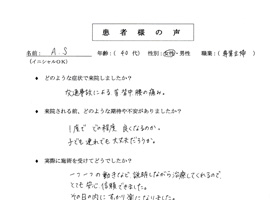 患者様の声
名前： A.S 年齢：( 40代 ) 性別：女性・男性 職業：( 専業主婦 )
(イニシャルOK)
◆ どのような症状で来院しましたか？
交通事故による首背中腰の痛み。
◆ 来院される前、どのような期待や不安がありましたか？
1度で どの程度 良くなるのか。
子ども連れでも大丈夫だろうか。
◆ 実際に施術を受けてどうでしたか？
一つ一つの動きなど 説明しながら治療してくれるので、
とても安心信頼できました。
その日の内にすっかり楽になりました。